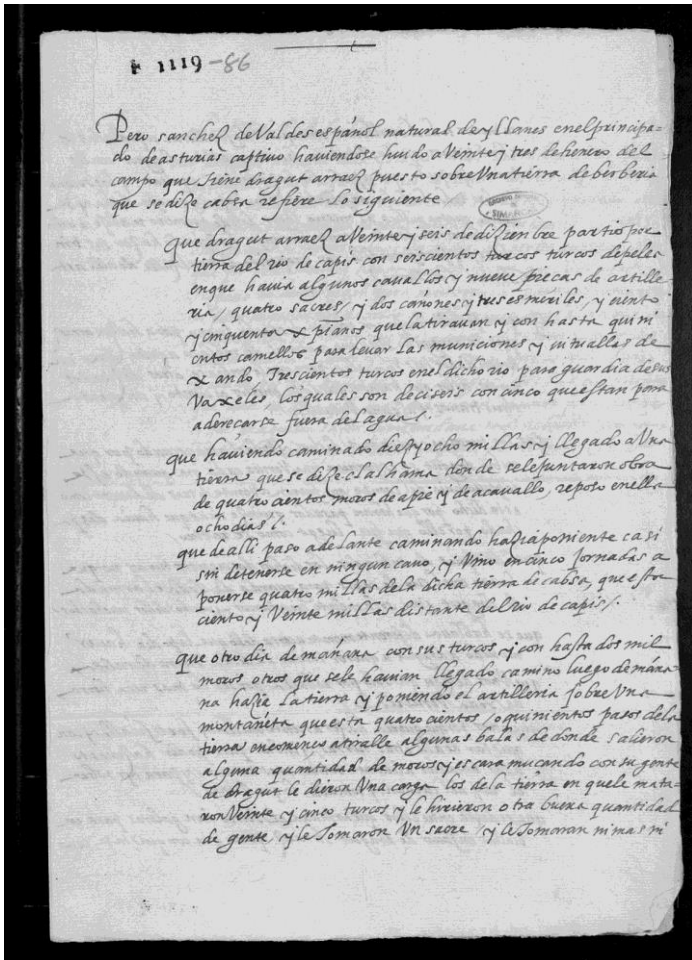 E 1119-86
Pero sanchez de Valdes español natural de yllanes en el principa-
do de asturias captivo haviendose huido a Veinte y tres de henero del
campo que tiene dragut arraez puesto sobre Una tierra de berberia
que se dize cabsa refiere lo siguiente
que dragut arraez a Veinte y seis de dizienbre partio por
tierra del rio de capis con seiscientos turcos turcos de pelea
en que havia algunos cavallos y nueve pieças de artille-
ria / quatro sacres / y dos cañones y tres esmeriles, y ciento
y cinquenta xpianos que la tiravan y con hasta quini
entos camellos para levar las municiones y vituallas de
xando Trescientos turcos en el dicho rio para guardia de sus
Vaxeles, los quales son deciseis con cinco que estan para
adereçarse fuera del agua /.
que haviendo caminado diez y ocho millas y llegado a Una
tierra que se dize el alhama donde se le juntaron obra
de quatro cientos moros de a pie y de a cavallo, reposo en ella
ocho dias /.
que de alli paso adelante caminando hazia poniente casi
sin detenerse en ningun cavo, y Vino en cinco jornadas a
ponerse quatro millas de la dicha tierra de cabsa, que esta
ciento y Veinte millas distante del rio de capis /.
que otro dia de mañana con sus turcos y con hasta dos mil
moros otros que se le havian llegado camino luego de maña-
na hazia la tierra y poniendo el artilleria sobre Una
montañeta que esta quatro cientos / o quinientos pasos de la
tierra encomenço a tiralle algunas balas de donde salieron
alguna quantidad de moros y escaramuçando con su gente
de dragut le dieron Una carga los de la tierra en que le mata-
ron Veinte y cinco turcos y le hirieron otra buena quantidad
de gente / y le Tomaron Un sacre / y le Tomaran ni mas ni